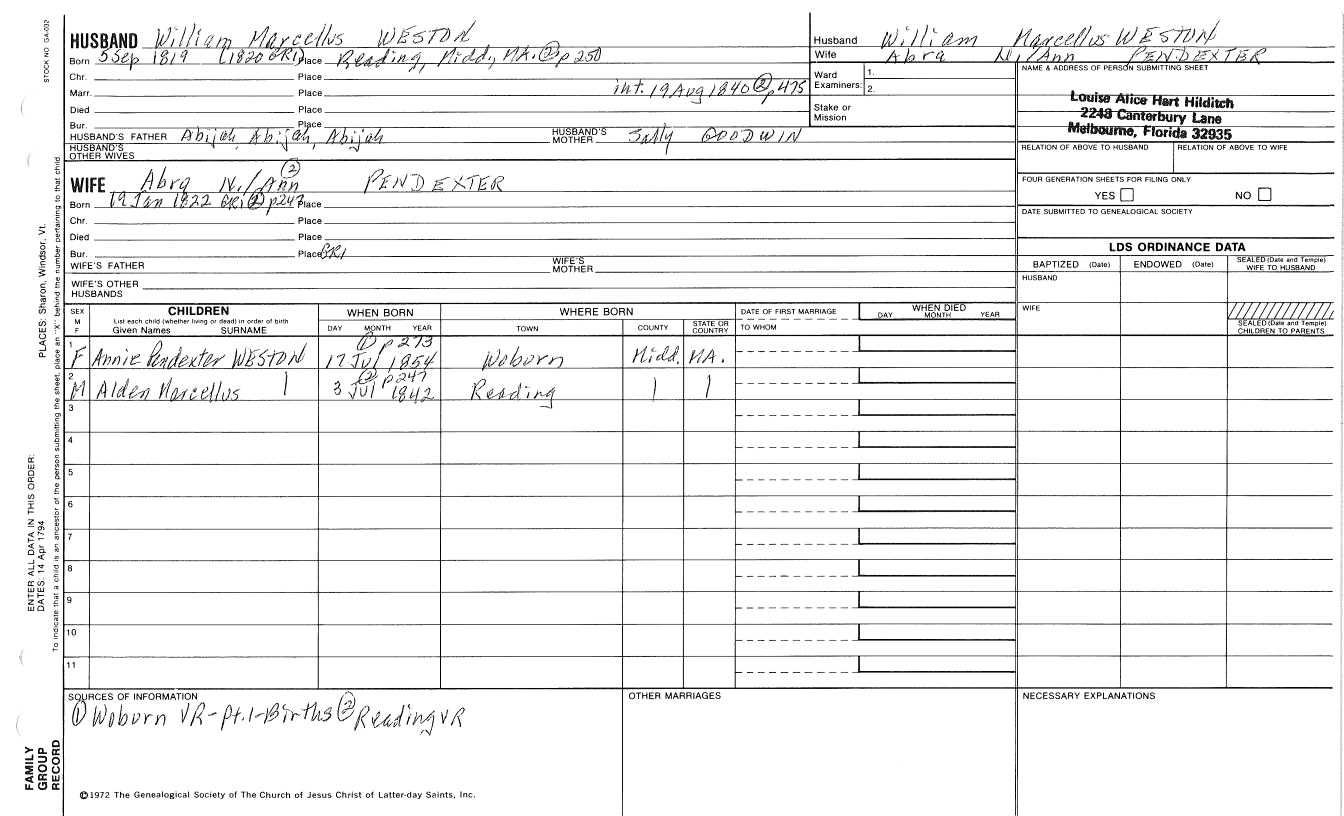 STOCK NO. GA-032
HUSBAND William Marcellus WESTON
Born 5 Sep 1819 (1820 GR1) Place Reading, Midd, MA. ② p 250
Chr. Place
Marr. Place int. 19 Aug 1840 ② p 475
Died Place
Bur. Place
HUSBAND'S FATHER Abijah, Abijah, Abijah HUSBAND'S MOTHER Sally GOODWIN
HUSBAND'S OTHER WIVES
Husband William Marcellus WESTON
Wife Abra N./Ann PENDEXTER
Ward Examiners: 1. 2.
Stake or Mission
NAME & ADDRESS OF PERSON SUBMITTING SHEET
Louise Alice Hart Hilditch
2248 Canterbury Lane
Melbourne, Florida 32935
RELATION OF ABOVE TO HUSBAND RELATION OF ABOVE TO WIFE
FOUR GENERATION SHEETS FOR FILING ONLY
YES NO
DATE SUBMITTED TO GENEALOGICAL SOCIETY
WIFE Abra N./Ann ② PENDEXTER
Born 19 Jan 1822 GR1 ② p247 Place
Chr. Place
Died Place
Bur. Place GR1
WIFE'S FATHER WIFE'S MOTHER
WIFE'S OTHER HUSBANDS
LDS ORDINANCE DATA
BAPTIZED (Date) ENDOWED (Date) SEALED (Date and Temple) WIFE TO HUSBAND
HUSBAND
WIFE
SEALED (Date and Temple) CHILDREN TO PARENTS
SEX M F CHILDREN List each child (whether living or dead) in order of birth Given Names SURNAME
WHEN BORN DAY MONTH YEAR
WHERE BORN TOWN COUNTY STATE OR COUNTRY
DATE OF FIRST MARRIAGE TO WHOM
WHEN DIED DAY MONTH YEAR
① p 273
1 F Annie Pendexter WESTON 17 Jul 1854 Woburn Midd. MA.
② p 247
2 M Alden Marcellus | 3 Jul 1842 Reading | |
3
4
5
6
7
8
9
10
11
SOURCES OF INFORMATION
① Woburn VR-Pt.1-Births ② Reading VR
OTHER MARRIAGES
NECESSARY EXPLANATIONS
©1972 The Genealogical Society of The Church of Jesus Christ of Latter-day Saints, Inc.
FAMILY GROUP RECORD
ENTER ALL DATA IN THIS ORDER:
DATES: 14 Apr 1794 PLACES: Sharon, Windsor, Vt.
To indicate that a child is an ancestor of the person submitting the sheet, place an "X" behind the number pertaining to that child